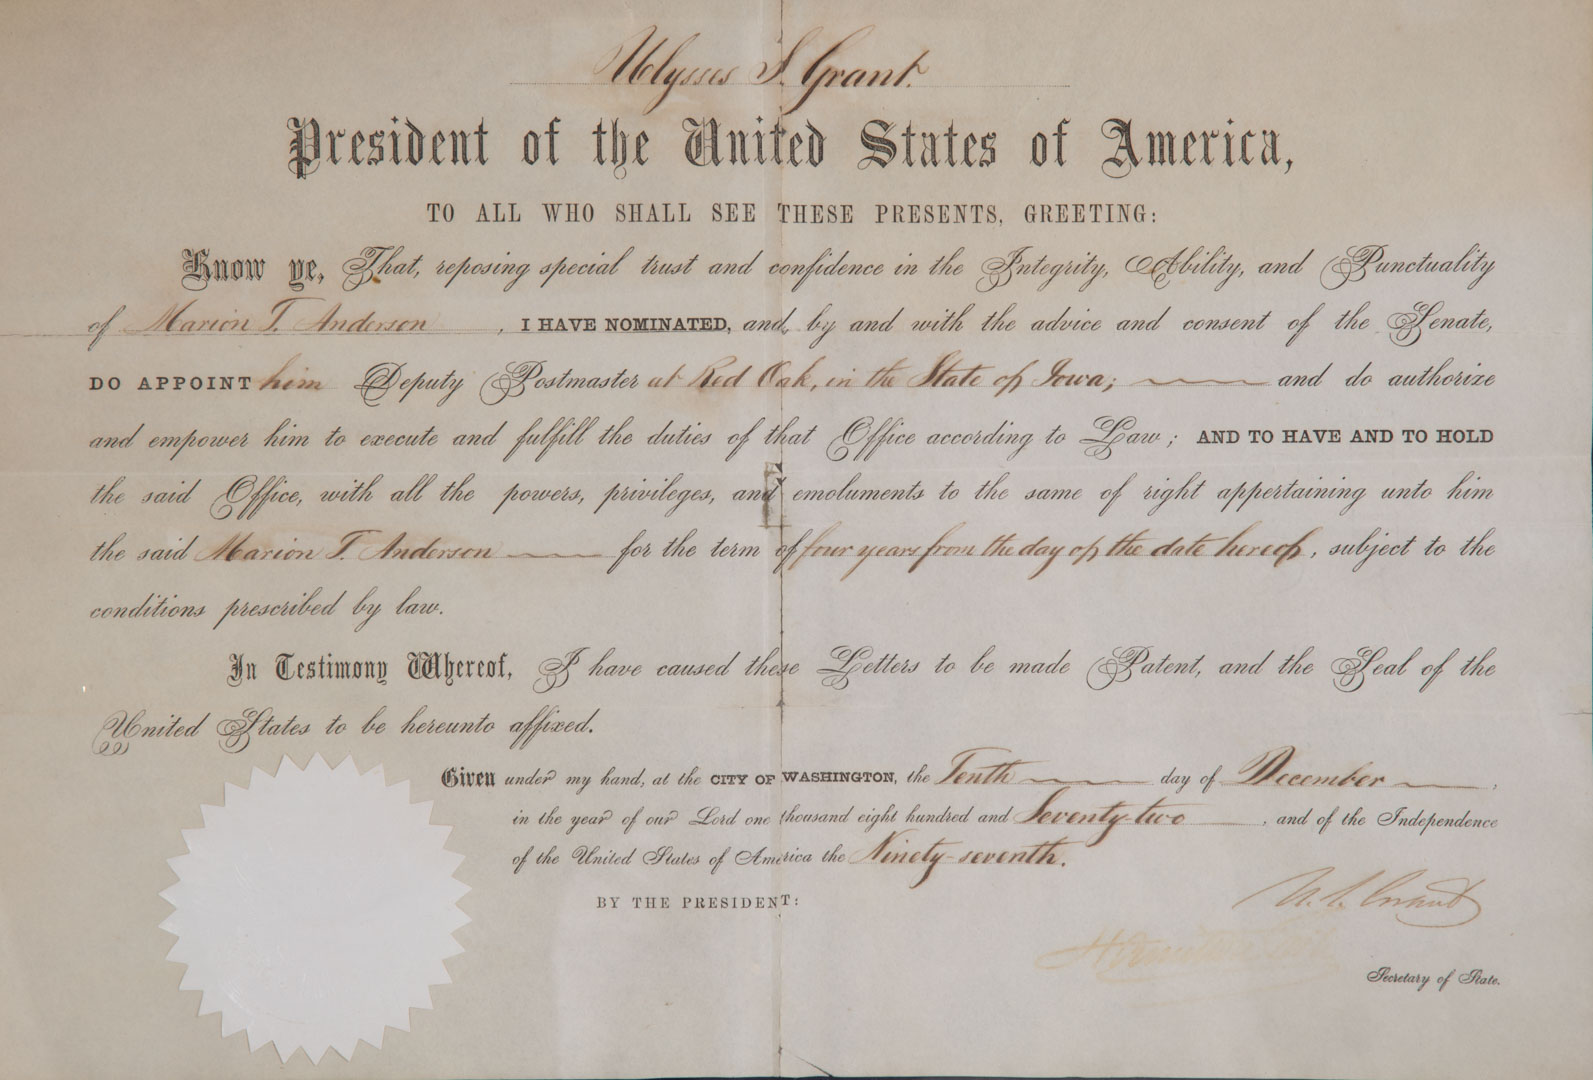 Ulysses S. Grant.
President of the United States of America,
TO ALL WHO SHALL SEE THESE PRESENTS, GREETING:
Know ye, That, reposing special trust and confidence in the Integrity, Ability, and Punctuality
of Marion T. Anderson, I HAVE NOMINATED, and, by and with the advice and consent of the Senate,
DO APPOINT him Deputy Postmaster at Red Oak, in the State of Iowa; and do authorize
and empower him to execute and fulfill the duties of that Office according to Law; AND TO HAVE AND TO HOLD
the said Office, with all the powers, privileges, and emoluments to the same of right appertaining unto him
the said Marion T. Anderson for the term of four years from the day of the date hereof, subject to the
conditions prescribed by law.
In Testimony Whereof, I have caused these Letters to be made Patent, and the Seal of the
United States to be hereunto affixed.
Given under my hand, at the CITY OF WASHINGTON, the Tenth day of December,
in the year of our Lord one thousand eight hundred and Seventy-two, and of the Independence
of the United States of America the Ninety-seventh.
BY THE PRESIDENT:
U. S. Grant
Hamilton Fish
Secretary of State.